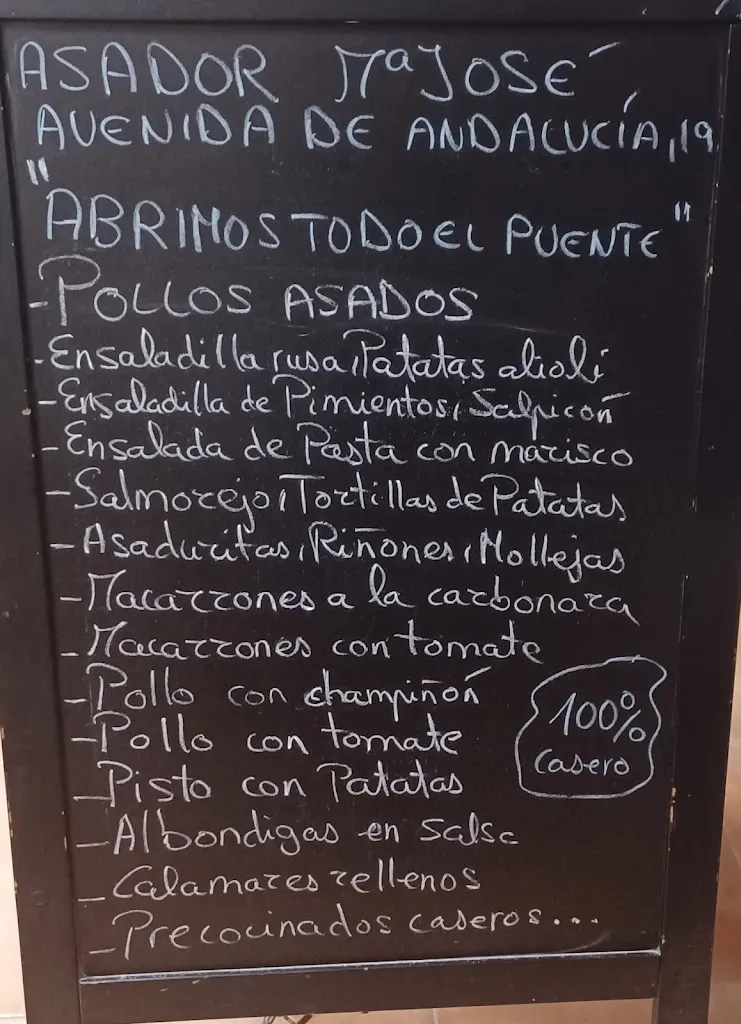 ASADOR Mª JOSÉ
AVENIDA DE ANDALUCÍA, 19
"ABRIMOS TODO EL PUENTE"
- POLLOS ASADOS
- Ensaladilla rusa, Patatas alioli
- Ensaladilla de Pimientos, Salpicón
- Ensalada de Pasta con marisco
- Salmorejo, Tortillas de Patatas
- Asaduritas, Riñones, Mollejas
- Macarrones a la carbonara
- Macarrones con tomate
- Pollo con champiñón
- Pollo con tomate
- Pisto con Patatas
- Albondigas en salsa
- Calamares rellenos
- Precocinados caseros...
100%
casero